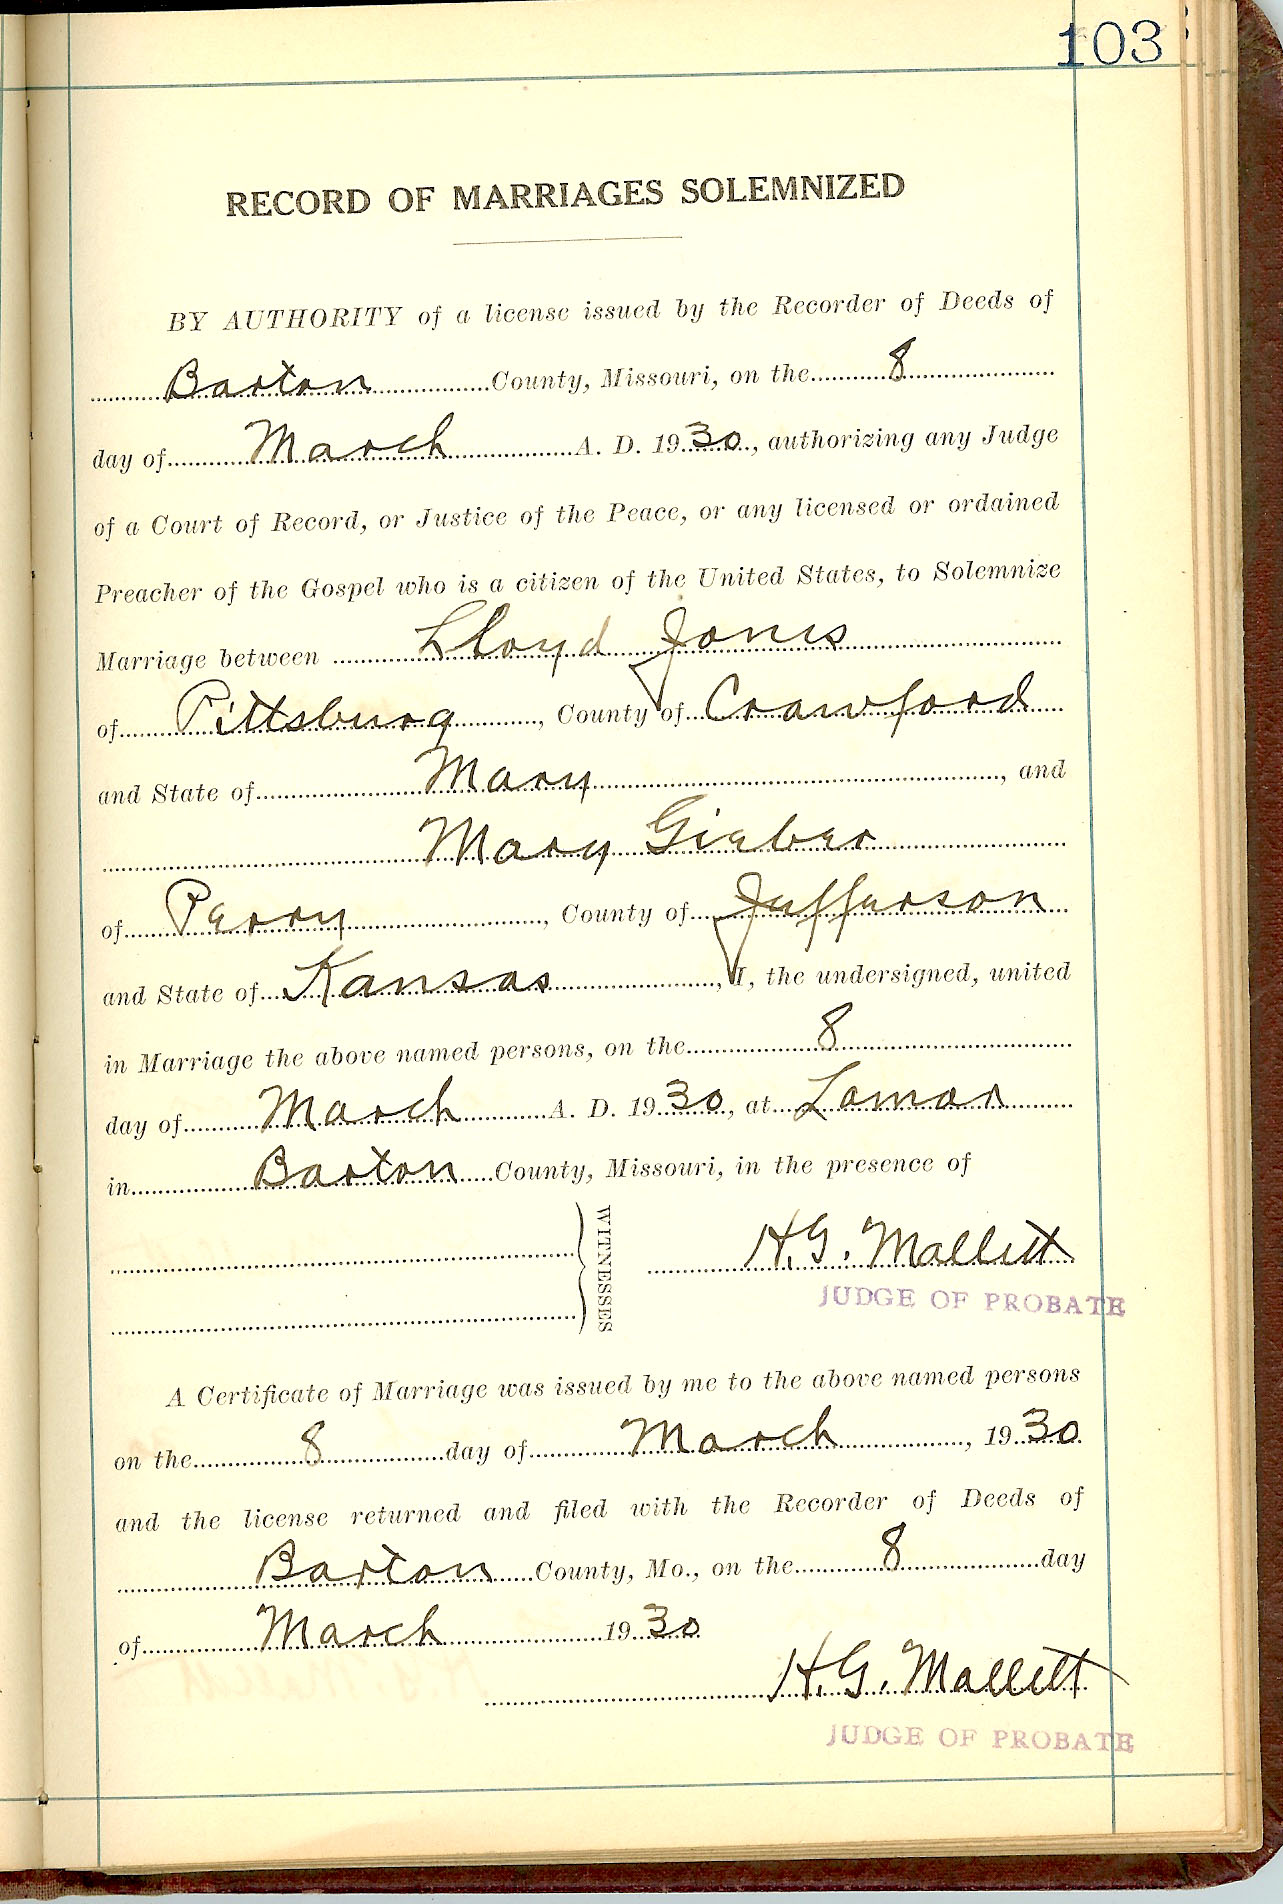 103
RECORD OF MARRIAGES SOLEMNIZED
BY AUTHORITY of a license issued by the Recorder of Deeds of
Barton County, Missouri, on the 8
day of March A. D. 1930, authorizing any Judge
of a Court of Record, or Justice of the Peace, or any licensed or ordained
Preacher of the Gospel who is a citizen of the United States, to Solemnize
Marriage between Lloyd Jones
of Pittsburg, County of Crawford
and State of Mary, and
Mary Gieber
of Perry, County of Jefferson
and State of Kansas, I, the undersigned, united
in Marriage the above named persons, on the 8
day of March A. D. 1930, at Lamar
in Barton County, Missouri, in the presence of
WITNESSES
H. G. Mallett
JUDGE OF PROBATE
A Certificate of Marriage was issued by me to the above named persons
on the 8 day of March, 1930
and the license returned and filed with the Recorder of Deeds of
Barton County, Mo., on the 8 day
of March 1930
H. G. Mallett
JUDGE OF PROBATE